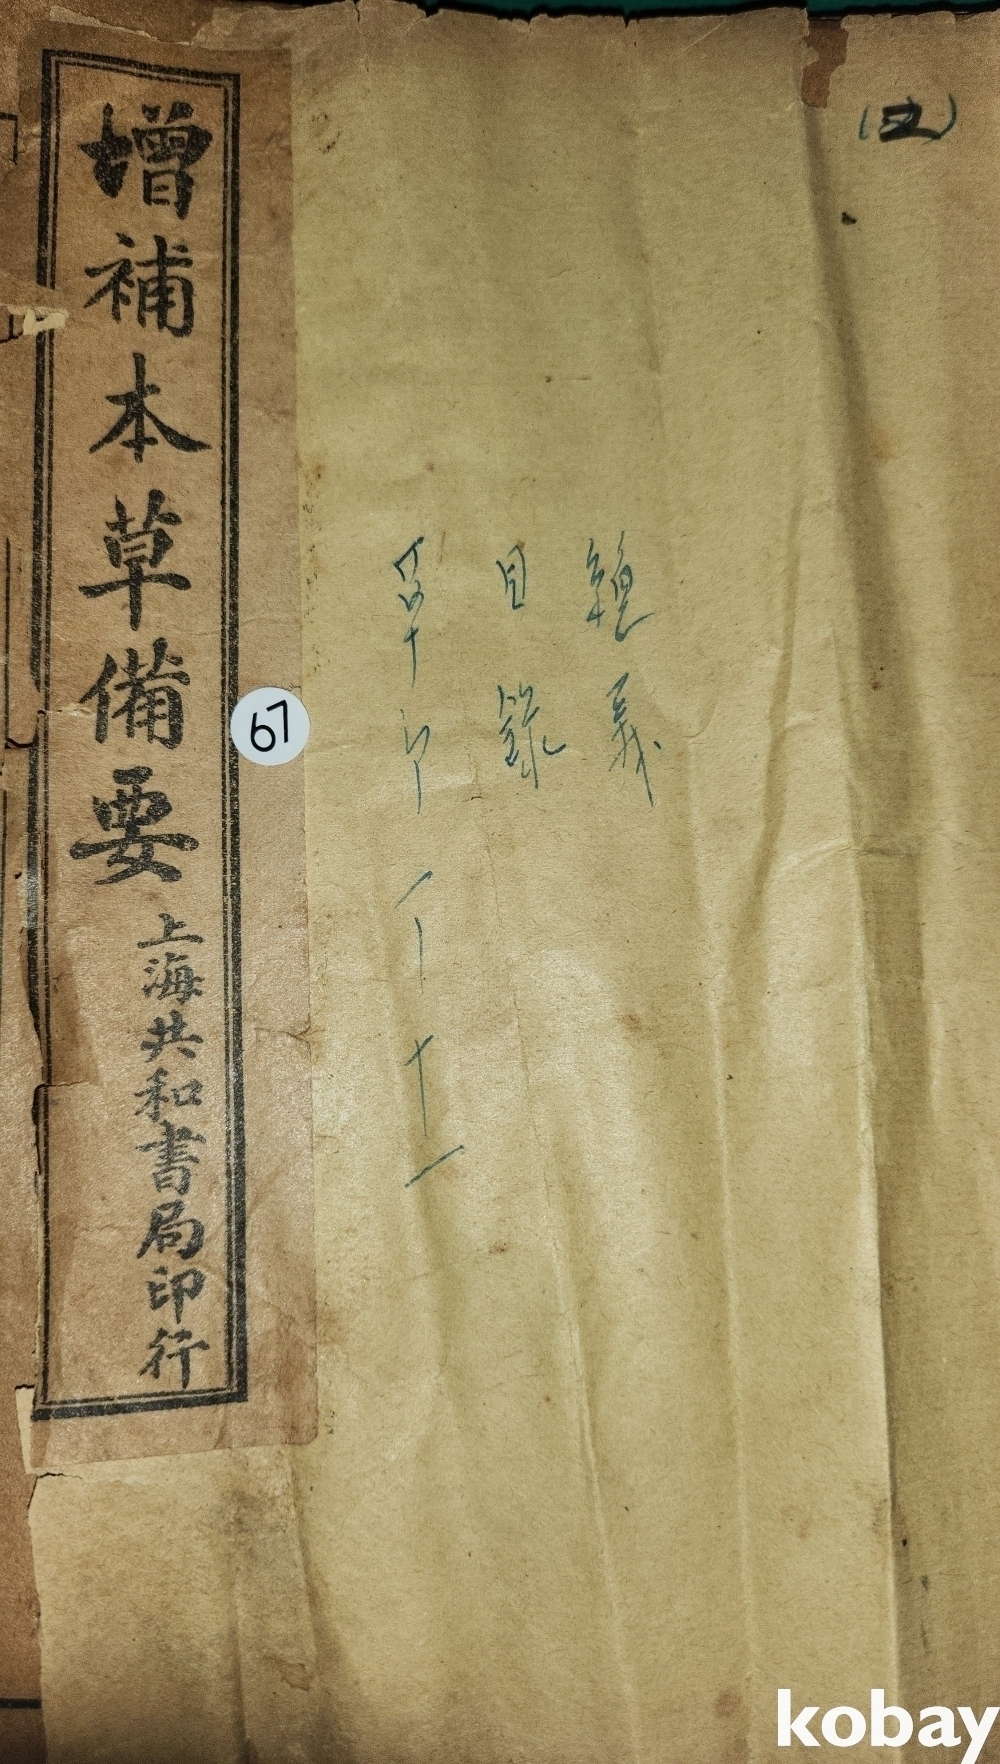 總義
目錄
草部
增補本草備要
上海共和書局印行
67
kobay